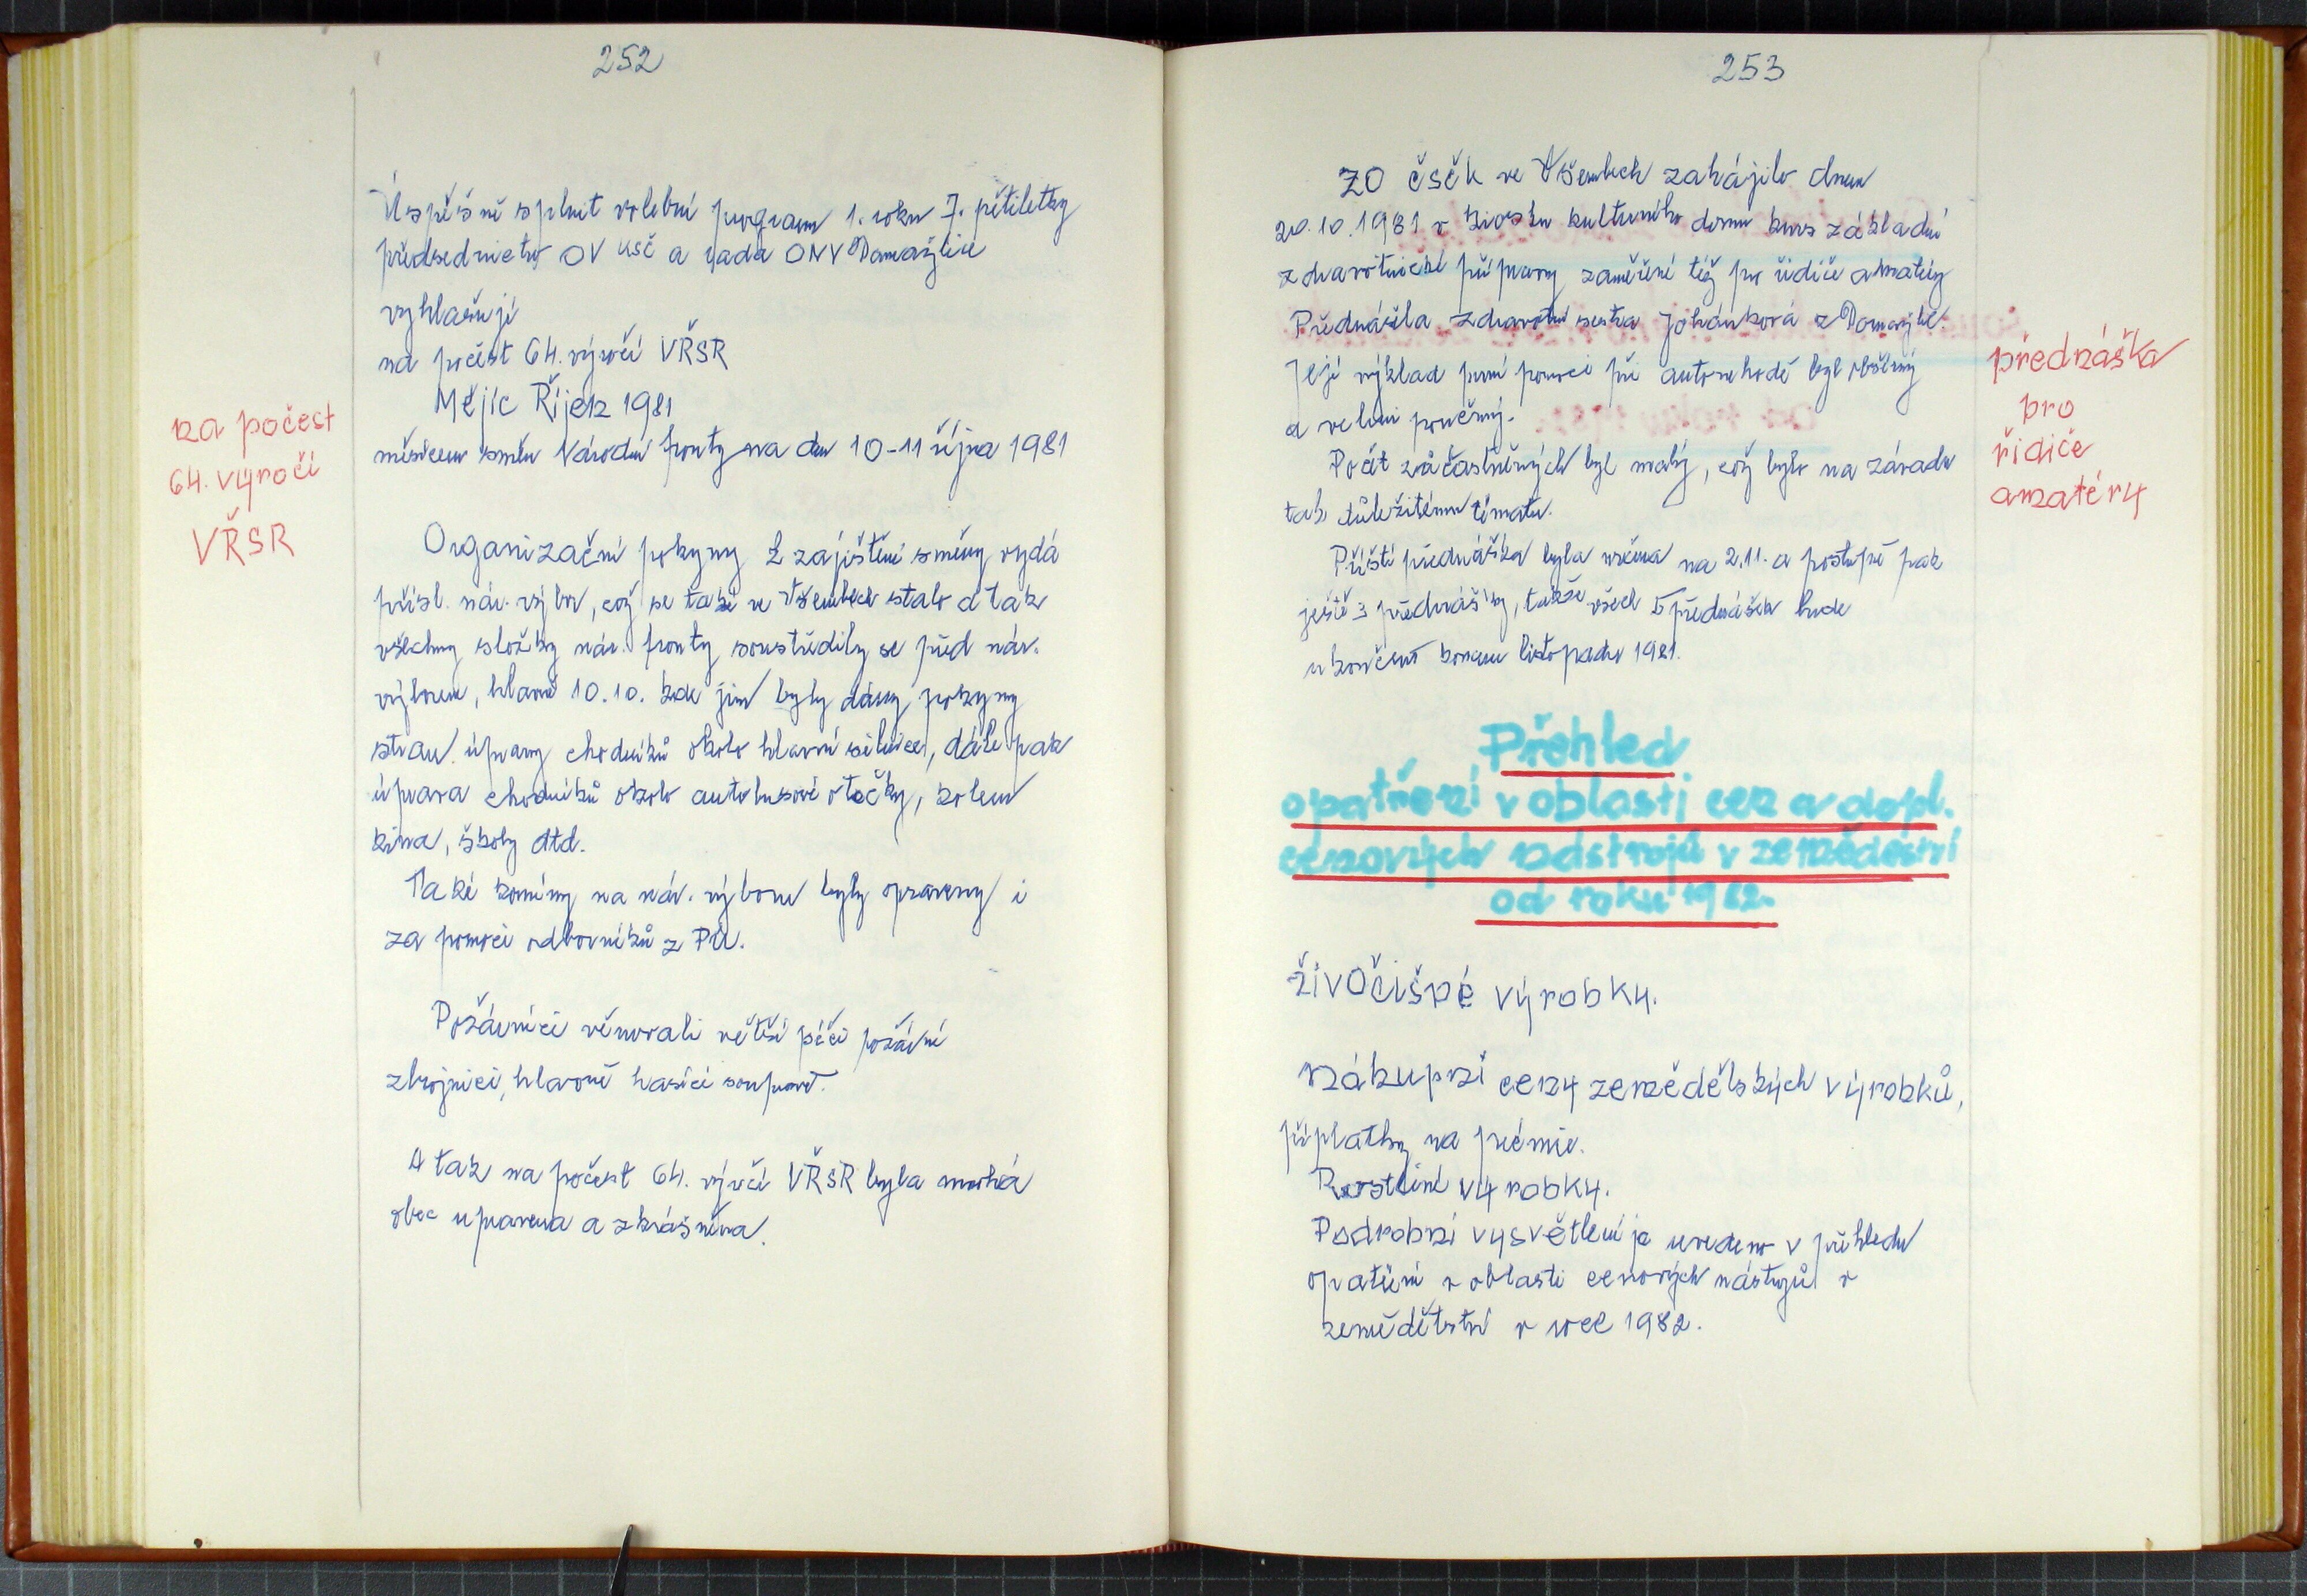 252
na počest
64. výročí
VŘSR
Úspěšně splnit volební program 1. roku 7. pětiletky
předsednictvo OV KSČ a rada ONV Domažlice
vyhlašují
na počest 64. výročí VŘSR
Měsíc Říjen 1981
měsícem směn Národní fronty na dny 10-11 října 1981
Organizační pokyny k zajištění směny vydá
přísl. nár. výbor, což se také ve Všerubech stalo a tak
všechny složky nár. fronty soustředily se před nár.
výborem, hlavně 10.10. kde jim byly dány pokyny
stran. úpravy chodníků okolo hlavní silnice, dále pak
úprava chodníků okolo autobusové otočky, kolem
kina, školy atd.
Také komíny na nár. výboru byly opraveny i
za pomoci odborníků z PÚ.
Požárníci věnovali větší péči požární
zbrojnici, hlavně hasící soupravě.
A tak na počest 64. výročí VŘSR byla mnohá
obec upravena a zkrášněna.
253
ZO ČSČK ve Všerubech zahájilo dnem
20.10.1981 v kiosku kulturního domu kurs základní
zdravotnické přípravy zaměřené též pro řidiče amatéry
Přednášela zdravotní sestra Johánková z Domažlic.
Její výklad první pomoci při autonehodě byl obšírný
a velmi poučný.
Počet zúčastněných byl malý, což bylo na závadu
tak důležitému tématu.
Příští přednáška byla určena na 2.11. a postupně pak
ještě 3 přednášky, takže všech 5 přednášek bude
ukončeno koncem listopadu 1981.
přednáška
pro
řidiče
amatéry
Přehled
opatření v oblasti cen a dopl.
cenových nástrojů v zemědělství
od roku 1982.
Živočišné výrobky.
Nákupní ceny zemědělských výrobků,
příplatky na prémie.
Rostliné výrobky.
Podrobní vysvětlení je uvedeno v přehledu
opatření v oblasti cenových nástrojů v
zemědělství v roce 1982.